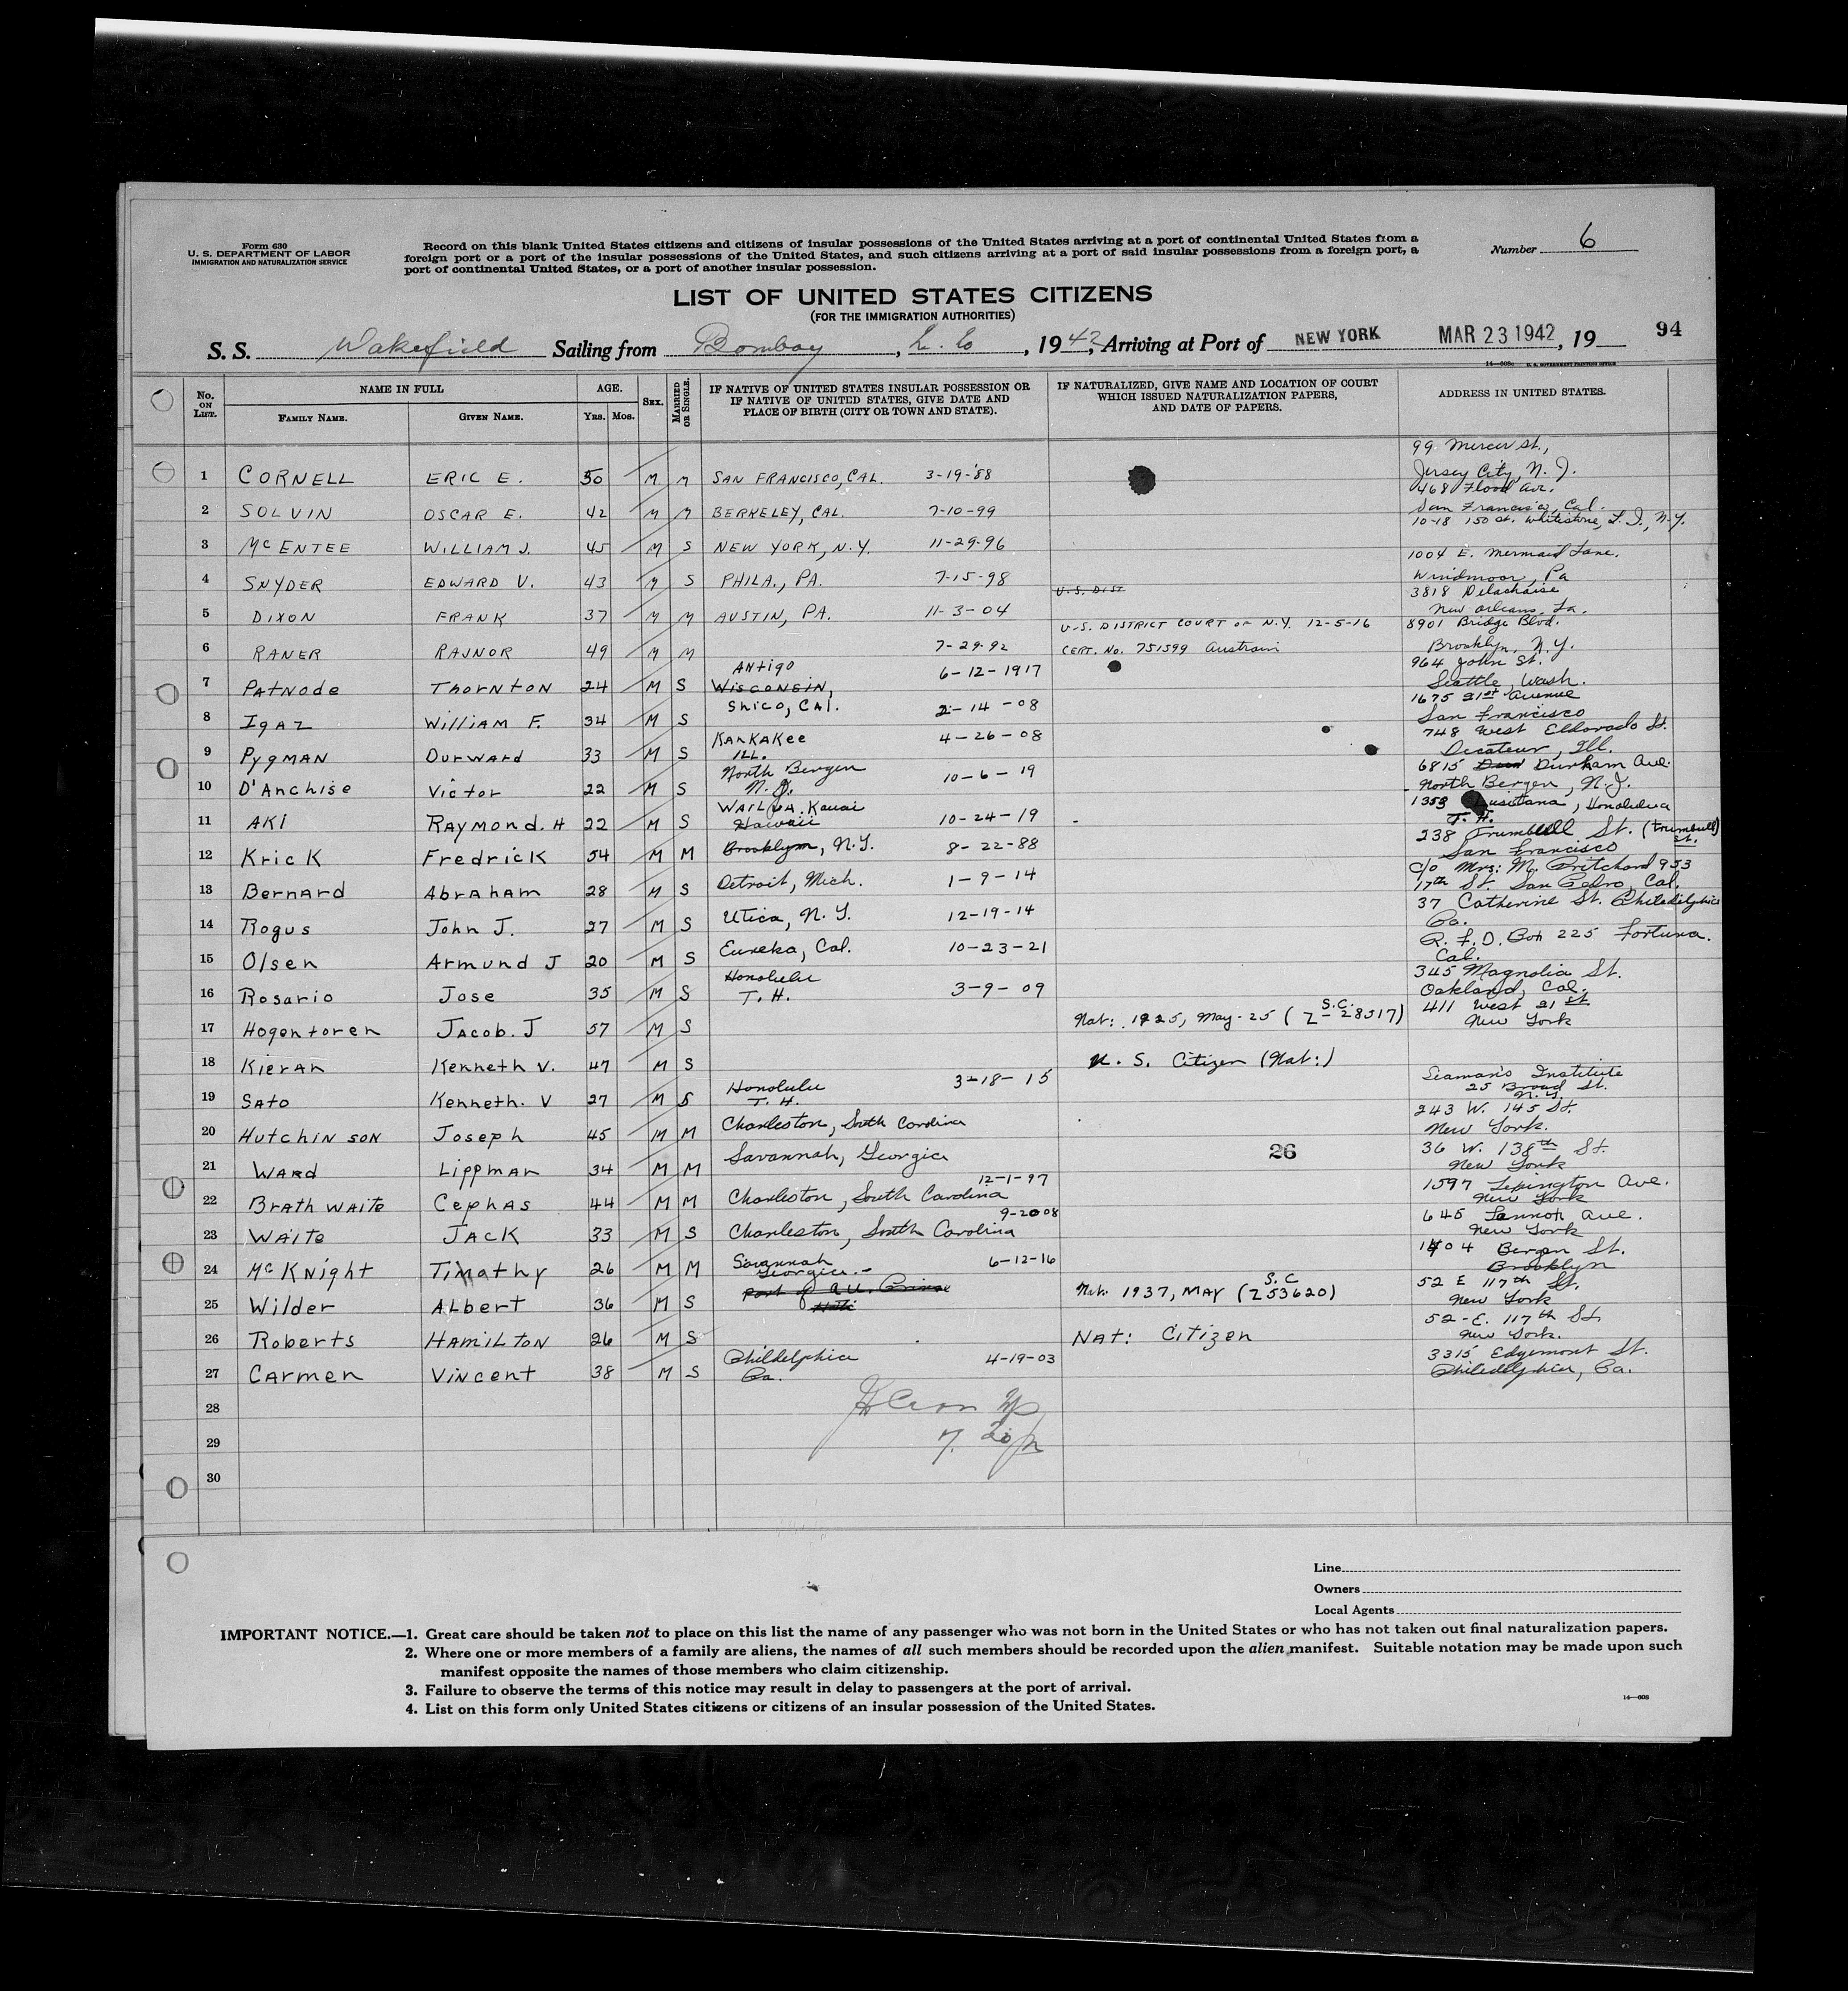 Form 630
U. S. DEPARTMENT OF LABOR
IMMIGRATION AND NATURALIZATION SERVICE
Record on this blank United States citizens and citizens of insular possessions of the United States arriving at a port of continental United States from a
foreign port or a port of the insular possessions of the United States, and such citizens arriving at a port of said insular possessions from a foreign port, a
port of continental United States, or a port of another insular possession.
Number 6
LIST OF UNITED STATES CITIZENS
(FOR THE IMMIGRATION AUTHORITIES)
S. S. Wakefield Sailing from Bombay, , 1942, Arriving at Port of NEW YORK MAR 23 1942, 19 94
No. ON LIST. NAME IN FULL FAMILY NAME. GIVEN NAME. AGE. YRS. MOS. SEX. MARRIED OR SINGLE. IF NATIVE OF UNITED STATES INSULAR POSSESSION OR IF NATIVE OF UNITED STATES, GIVE DATE AND PLACE OF BIRTH (CITY OR TOWN AND STATE). IF NATURALIZED, GIVE NAME AND LOCATION OF COURT WHICH ISSUED NATURALIZATION PAPERS, AND DATE OF PAPERS. ADDRESS IN UNITED STATES.
1 CORNELL ERIC E. 50 M M SAN FRANCISCO, CAL. 3-19-'88 99 Mercer St., Jersey City, N. J.
2 SOLVIN OSCAR E. 42 M M BERKELEY, CAL. 7-10-99 468 Flood Ave. San Francisco, Cal.
3 McENTEE WILLIAM J. 45 M S NEW YORK, N.Y. 11-29-96 10-18 150 St. Whitestone, L. I., N.Y.
4 SNYDER EDWARD V. 43 M S PHILA., PA. 7-15-98 1004 E. Mermaid Lane, Windmoor, Pa
5 DIXON FRANK 37 M M AUSTIN, PA. 11-3-04 U.S. DIST 3818 Delachaise New Orleans, La.
6 RANER RAJNOR 49 M M 7-29-92 U.S. DISTRICT COURT OF N.Y. 12-5-16 CERT. No. 751599 Austrain 8901 Bridge Blvd. Brooklyn, N.Y.
7 Patnode Thornton 24 M S Antigo Wisconsin, 6-12-1917 964 John St. Seattle, Wash.
8 Igaz William F. 34 M S Shico, Cal. 2-14-08 1675 31st Avenue San Francisco
9 Pygman Durward 33 M S Kankakee Ill. 4-26-08 748 West Eldorado St. Decateur, Ill.
10 D'Anchise Victor 22 M S North Bergen N. J. 10-6-19 6815 Durham Ave. North Bergen, N.J.
11 AKI Raymond. H 22 M S WAILUA, Kauai Hawaii 10-24-19 1353 Lusitana, Honolulu T. H.
12 Krick Fredrick 54 M M Brooklyn, N.Y. 8-22-88 238 Trumbull St. (Trumbull) St. San Francisco
13 Bernard Abraham 28 M S Detroit, Mich. 1-9-14 c/o Mrs. M. Pritchard 953 17th St. San Pedro, Cal.
14 Rogus John J. 27 M S Utica, N. Y. 12-19-14 37 Catherine St. Philadelphia Pa.
15 Olsen Armund J 20 M S Eureka, Cal. 10-23-21 R. F. D. Box 225 Fortuna. Cal.
16 Rosario Jose 35 M S Honolulu T. H. 3-9-09 345 Magnolia St. Oakland, Cal.
17 Hogentoren Jacob. J 57 M S Nat: 1925, May-25 (S.C. Z-28517) 411 West 21 St. New York
18 Kieran Kenneth V. 47 M S U. S. Citizen (Nat:)
19 Sato Kenneth. V 27 M S Honolulu T. H. 3-18-15 Seaman's Institute 25 Broad St. N. Y.
20 Hutchinson Joseph 45 M M Charleston, South Carolina 243 W. 145 St. New York.
21 Ward Lippman 34 M M Savannah, Georgia 26 36 W. 138th St. New York
22 Brathwaite Cephas 44 M M Charleston, South Carolina 12-1-97 1597 Lexington Ave. New York
23 Waite Jack 33 M S Charleston, South Carolina 9-2008 645 Lennox Ave. New York
24 McKnight Timathy 26 M M Savannah Georgia 6-12-16 1404 Bergen St. Brooklyn
25 Wilder Albert 36 M S Port of Haiti Nat. 1937, May (S.C Z53620) 52 E 117th St. New York
26 Roberts Hamilton 26 M S Nat: Citizen 52-E. 117th St. New York.
27 Carmen Vincent 38 M S Phildelphia Pa. 4-19-03 3315 Edgemont St. Philadelphia, Pa.
28
29
30
Line
Owners
Local Agents
IMPORTANT NOTICE.—1. Great care should be taken not to place on this list the name of any passenger who was not born in the United States or who has not taken out final naturalization papers.
2. Where one or more members of a family are aliens, the names of all such members should be recorded upon the alien manifest. Suitable notation may be made upon such
manifest opposite the names of those members who claim citizenship.
3. Failure to observe the terms of this notice may result in delay to passengers at the port of arrival.
4. List on this form only United States citizens or citizens of an insular possession of the United States.
14—608